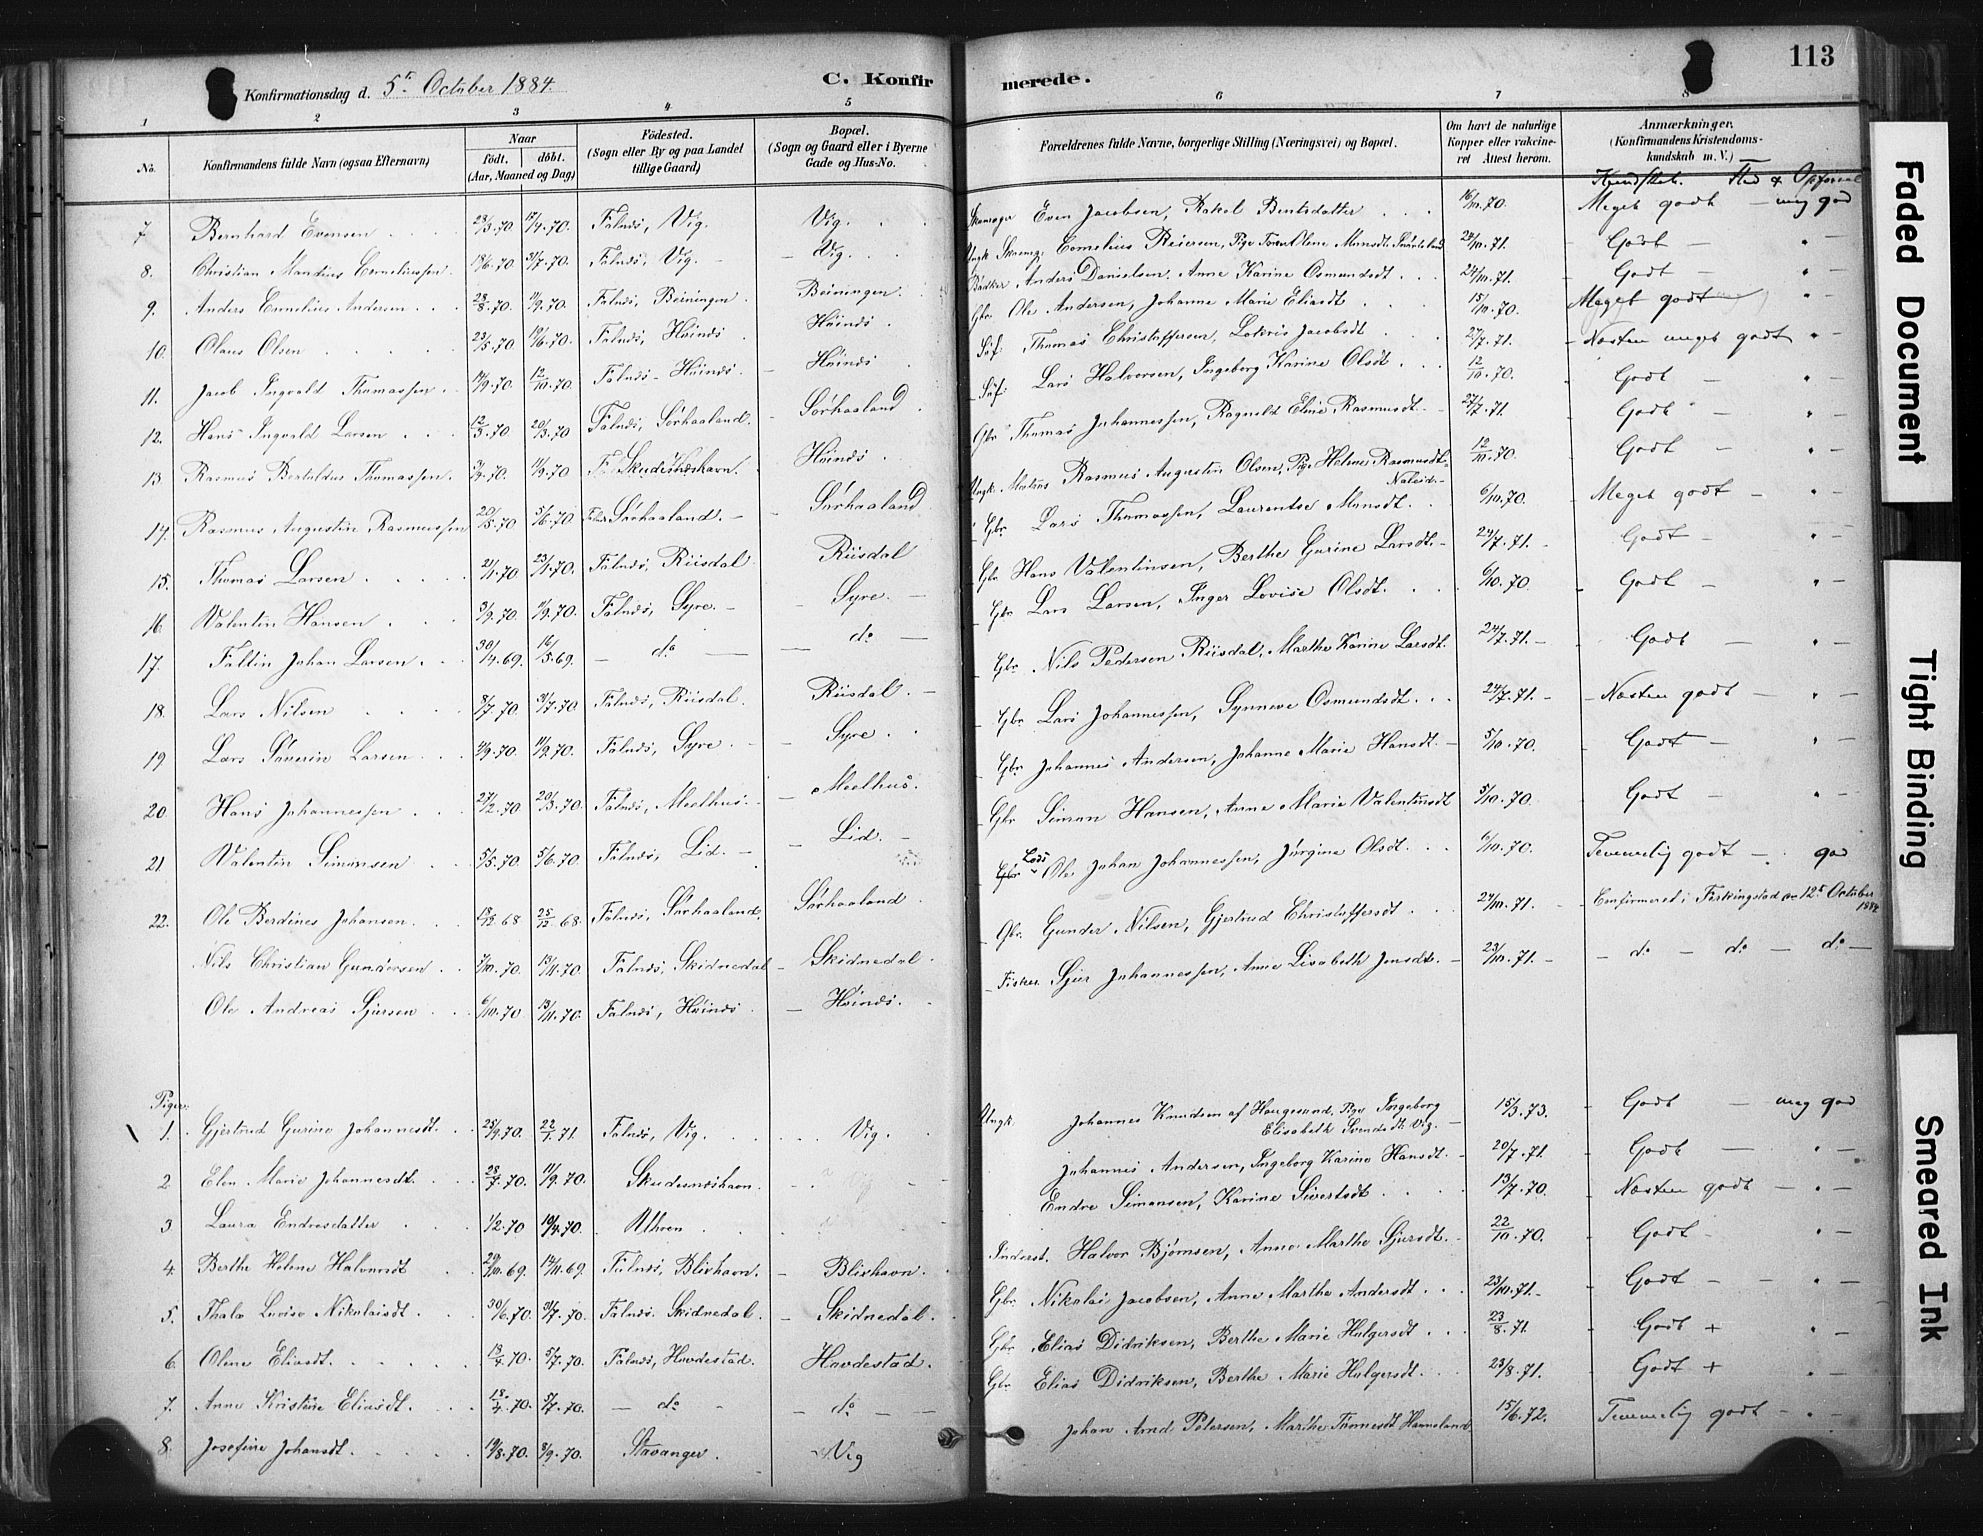 113
Konfirmationsdag d. 5t October 1884.
C. Konfirmerede.
1 2 3 4 5 6 7 8
No. Konfirmandens fulde Navn (ogsaa Efternavn) Naar født. døbt. (Aar, Maaned og Dag) Fødested. (Sogn eller By og paa Landet tillige Gaard) Bopæl. (Sogn og Gaard eller i Byerne Gade og Hus-No. Forældrenes fulde Navne, borgerlige Stilling (Næringsvei) og Bopæl. Om havt de naturlige Kopper eller vakcineret Attest herom. Anmærkninger. (Konfirmandens Kristendomskundskab m. V.)
Kundskab. Flid & Opførsel
7 Bernhard Evensen 28/3.70 17/4.70. Falnæs, Vig. Vig. Even Jacobsen, Rakel Bentsdatter 16/10.70. Meget godt — meg god
8. Christian Mandius Corneliussen. 18/6.70 31/7.70. Falnæs, Vig. — Vig. Ungk. Cornelius Reiersen, Pige 24/10.71. Godt — " —
9. Anders Cornelius Andersen 28/8.70. 11/9.70. Falnæs, Beiningen. Beiningen. Bødker Anders Danielsen, Anne Karine Osmundsdt. 24/10.71. Godt — " —
10. Olaus Olsen 23/5.70 19/6.70. Falnæs, Høinæs Høinæs. Gbr. Ole Andersen, Johanne Marie Eliasdt 15/10.70. Meget godt — " —
11. Jacob Ingvald Thomassen. 14/9.70 12/10.70. Falnæs - Høinæs. Høinæs Søf. Thomas Christoffersen, Lokris Jacobsdt 27/7.71. Næsten meget godt " —
12. Hans Ingvald Larsen 12/3.70 20/3.70 Falnæs, Sørhaaland. Sørhaaland Søf. Lars Halvorsen, Ingeborg Karine Olsdt. 12/10.70. Godt — " —
13. Rasmus Bertaldus Thomassen. 3/9.70. 11/9.70 F. Skudesnæshavn. Høinæs Gbr Thomas Johannessen, Ragnald Eline Rasmusdt. 27/7.71. Godt — " —
14. Rasmus Augustin Rasmussen 20/5.70 5/6.70. Falnæs Sørhaaland. — Sørhaaland Ungk. Matros Rasmus Augustin Olsen, Pige Helene Rasmusdt. 12/10.70. Godt — " —
15. Thomas Larsen 21/1.70 23/1.70. Falnæs, Riisdal Riisdal Gbr. Lars Thomassen, Laurentse Mansdt. 6/10.70. Meget godt — " —
16. Valentin Hansen 3/9.70. 11/9.70. Falnæs, Syre. — Syre. — Gbr Hans Valentinsen, Berthe Gurine Larsdt. — 24/7.71. Godt — " —
17. Faltin Johan Larsen. 30/4.69. 16/5.69. — do — do — Gbr Lars Larsen, Inger Lovise Olsdt. 6/10.70. Godt — " —
18. Lars Nilsen 8/7.70. 31/7.70 Falnæs, Riisdal. Riisdal. — Gbr Nils Pedersen Riisdal, Marthe Karine Larsdt. 24/7.71. — Godt — " —
19 Lars Søverin Larsen 4/9.70. 11/9.70. Falnæs, Syre. — Syre. Gbr Lars Johannessen, Synneve Osmundsdt. 24/7.71. — Næsten godt — " —
20. Hans Johannessen 27/2.70 20/3.70. Falnæs, Meelhus. — Meelhus. Gbr Johannes Andersen, Johanne Marie Hansdt. — 5/10.70. Godt — " —
21 Valentin Simonsen 5/5.70 5/6.70. Falnæs, Lid. — Lid. — Gbr Simon Hansen, Anne Marie Valentinsdt 5/10.70. Godt — " —
22. Ole Berdines Johansen. 13/12.68 25/12.68. Falnæs, Sørhaaland. Sørhaaland Lods Ole Johan Johannessen, Jørgine Olsdt. 6/10.70. Temmelig godt — god
Nils Christian Gundersen 2/10.70. 13/11.70. Falnæs, Skidnedal — Skidnedal. Gbr. Gunder Nilsen, Gjertrud Christoffersdt. 24/10.71. — Confirmered i Ferkingstad 12t October 1884
Ole Andreas Sjursen 6/10.70 13/11.70. Falnæs, Høinæs — Høinæs. Fisker Sjur Johannessen, Anne Lisabeth Jensdt. — 23/10.71. — do — do — do —
Piger.
1. Gjertrud Gurine Johannesdt. 25/9.70. 22/1.71. Falnæs, Vig. Vig. Ungk. Johannes Knudsen af Haugesund, Pige Ingeborg Elisabeth Svendsdt. Vig. — 15/3.73. Godt — meg god
2. Elen Marie Johannesdt. 28/7.70. 11/9.70. Skudesnæshavn. Johannes Andersen, Ingeborg Karine Hansdt. — 20/7.71. Godt — " —
3 Laura Endresdatter 1/2.70 10/4.70. Uthven. Endre Simonsen, Karine Sivertsdt. 13/7.70. Næsten godt — " —
4. Berthe Helene Halvorsdt 29/10.69. 14/11.69. Falnæs, Blixhavn. — Blixhavn. Inderst. Halvor Bjørnsen, Anne Marthe Sjursdt. — 22/10.70. Godt — " —
5. Thala Lovise Nikolaisdt. 30/6.70. 31/7.70. Falnæs, Skidnedal. — Skidnedal. Gbr. Nikolai Jacobsen, Anne Marthe Andersdt. 23/10.71. — Godt — " —
6. Olene Eliasdt. 13/4.70. 5/7.70. Falnæs, Hovdestad. Hovdestad. Gbr Elias Didriksen, Berthe Marie Holgersdt. 23/8.71. Godt + " —
7. Anne Kristine Eliasdt. 18/4.70. 5/7.70. — do — — do — — Gbr Elias Didriksen, Berthe Marie Holgersdt. 23/8.71. Godt + " —
8. Josefine Johansdt. 19/8.70. 8/9.70. Stavanger. Vig Johan Arnd Petersen, Marthe Tønnesdt Hanneland 15/6.72. Temmelig godt — " —
Faded Document
Tight Binding
Smeared Ink